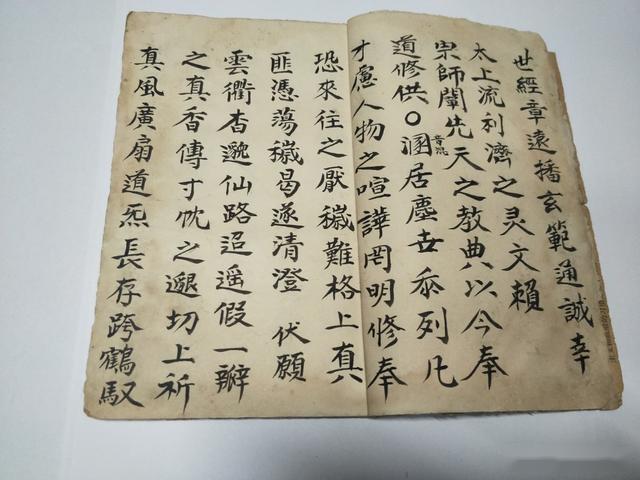 世經章遠播玄範通誠幸
太上流利濟之灵文賴
宗師闡先天之教典以今奉
道修供〇溷居塵世忝列凡
才慮人物之喧譁罔明修奉
恐來往之厭穢難格上真
匪憑蕩穢曷遂清澄 伏願
雲衢杳邈仙路迢遥假一瓣
之真香傳寸忱之邇切上祈
真風廣扇道炁長存跨鶴馭